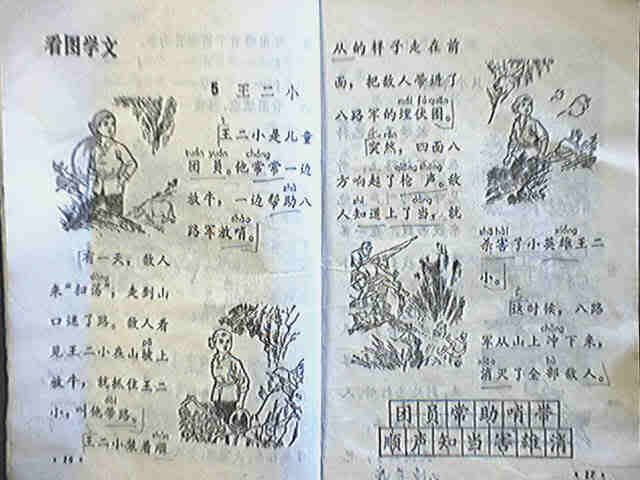 看图学文
5 王二小
王二小是儿童
团员。他常常一边
放牛，一边帮助八
路军放哨。
有一天，敌人
来“扫荡”，走到山
口迷了路。敌人看
见王二小在山坡上
放牛，就抓住王二
小，叫他带路。
王二小装着顺
从的样子走在前
面，把敌人带进了
八路军的埋伏圈。
突然，四面八
方响起了枪声。敌
人知道上了当，就
杀害了小英雄王二
小。
这时候，八路
军从山上冲下来，
消灭了全部敌人。
团员常助哨带
顺声知当害雄消